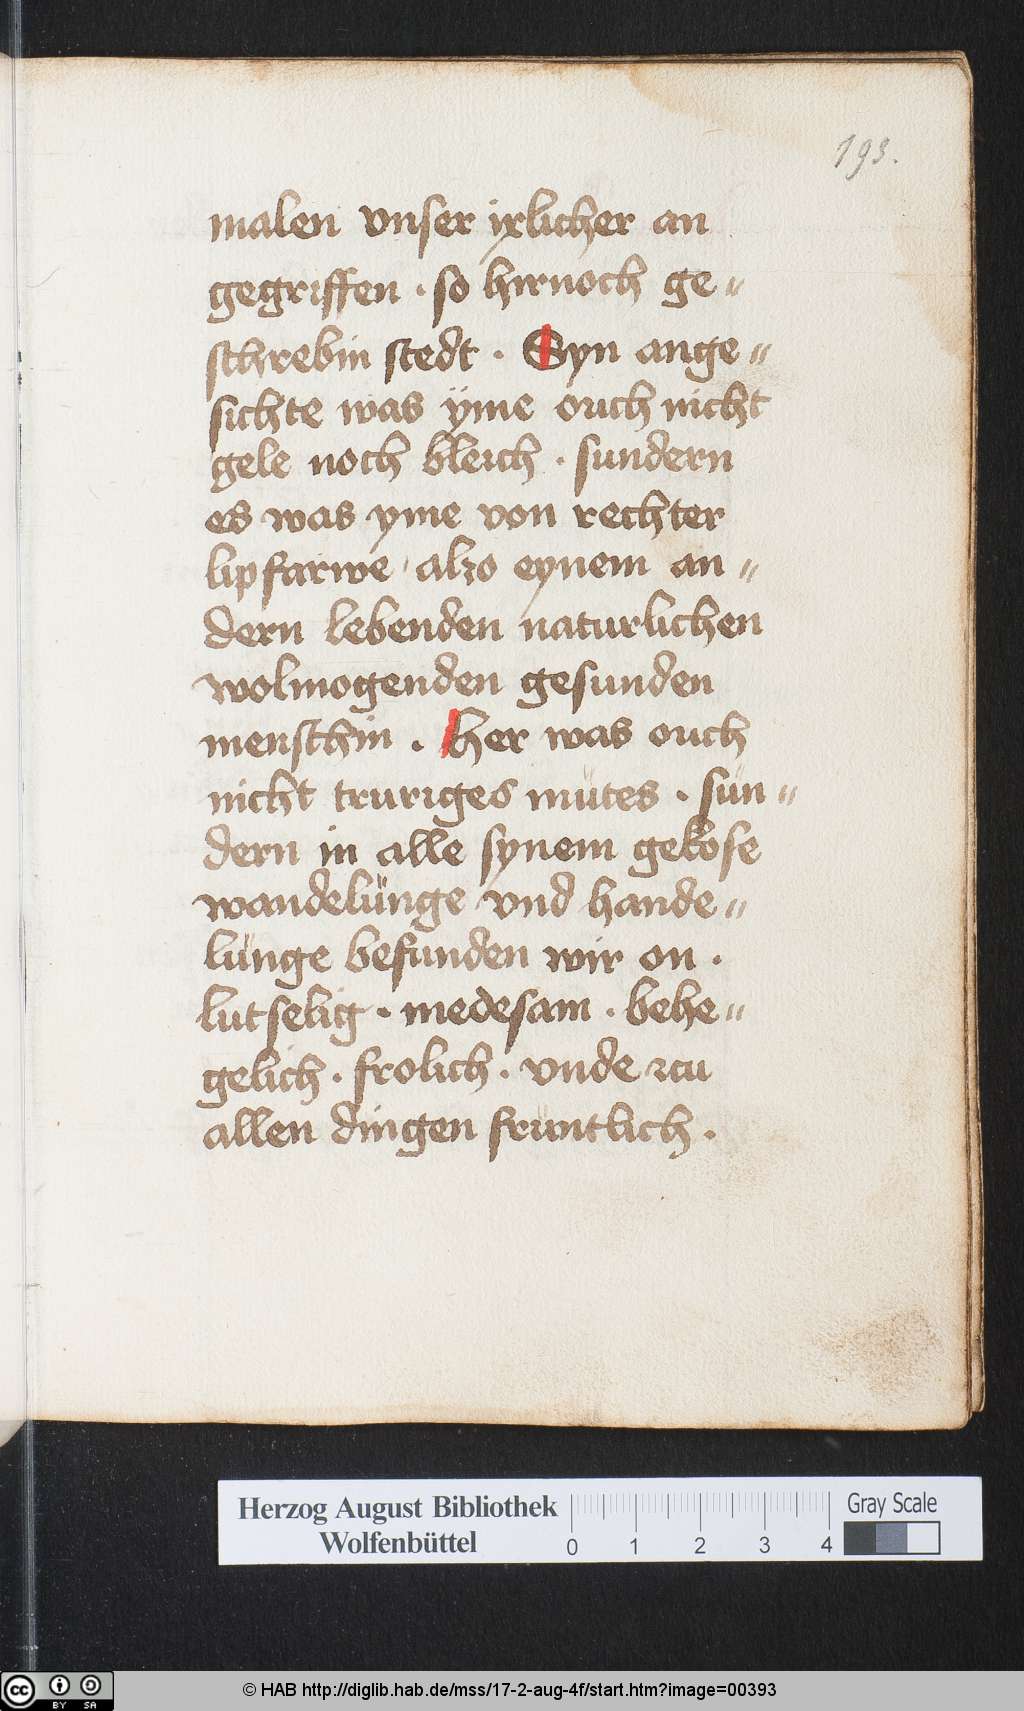 193.
malen vnser ixlicher an
gegriffen · so hirnoch ge〃
schrebin stedt · Syn ange〃
sichte was ÿme ouch nicht
gele noch bleich · sundern
es was yme von rechter
lipfarwe · alzo eynem an〃
dern lebenden naturlichen
wolmogenden gesunden
menschin . Her was ouch
nicht truriges mütes · sün〃
dern in alle synem gekose
wandelünge vnd hande〃
lünge befunden wir on ·
lutselig · medesam · behe〃
gelich · frolich · vnde zcu
allen dingen früntlich ·
Herzog August Bibliothek
Wolfenbüttel
0 1 2 3 4
Gray Scale
cc BY SA
© HAB http://diglib.hab.de/mss/17-2-aug-4f/start.htm?image=00393